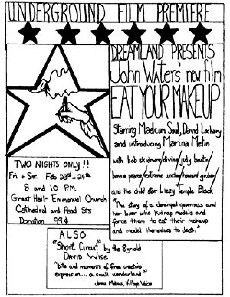 UNDERGROUND FILM PREMIERE
DREAMLAND PRESENTS
John Waters' new film
EAT YOUR MAKEUP
Starring Maelcum Soul, David Lochary
and introducing Marina Melin
with bob skidmore/divine/judy boutin/
bonnie pearce/extreme unction/howard gruber/
and the child star Lizzy Temple Black
"The story of a demented governess and
her lover who kidnap models and
force them to eat their makeup and
model themselves to death."
TWO NIGHTS ONLY!!
Fri + Sat Feb 23rd-24th
8 and 10 P.M.
Great Hall - Emmanuel Church
Cathedral and Read Sts
Donation 99¢
ALSO
"Short Circus" by the Byrold
David Wise
"bits and moments of free unearthly
expression... a small wonderment"
Jonas Mekas, Village Voice